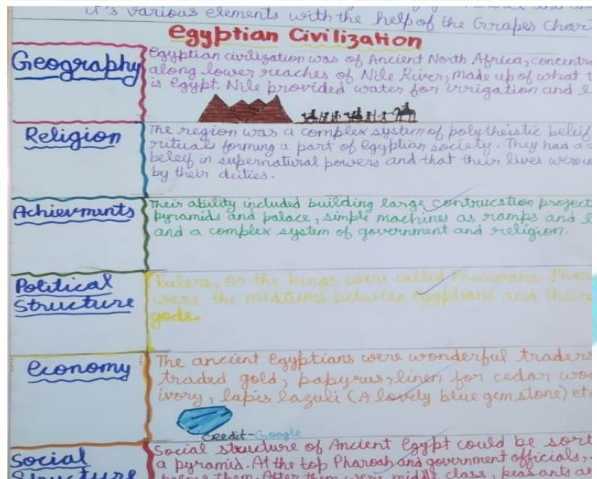 it's various elements with the help of the Grapes Chart
Egyptian Civilization
Geography
Egyptian civilization was of Ancient North Africa, concentr
along lower reaches of Nile River, made up of what
is Egypt. Nile provided water for irrigation and
Religion
The region was a complex system of polytheistic beleif
rituals forming a part of egyptian society. They had a
beleif in supernatural powers and that their lives were
by their deities.
Achievments
Their ability included building large contrucstion project
pyramids and palace, simple machines as ramps and
and a complex system of government and religion.
Political
Structure
Rulers, or the kings were called Pharoahs.
were the mediums between Egyptians and their
gods.
Economy
The ancient Egyptians were wonderful traders
traded gold, papyrus, linen for cedar woo
ivory, lapis lazuli (A lovely blue gem stone) et
Credit-Google
Social
Structure
Social structure of Ancient Egypt could be sort
a pyramid. At the top Pharoah and government officials,
below them. After them were middle class, peasants a